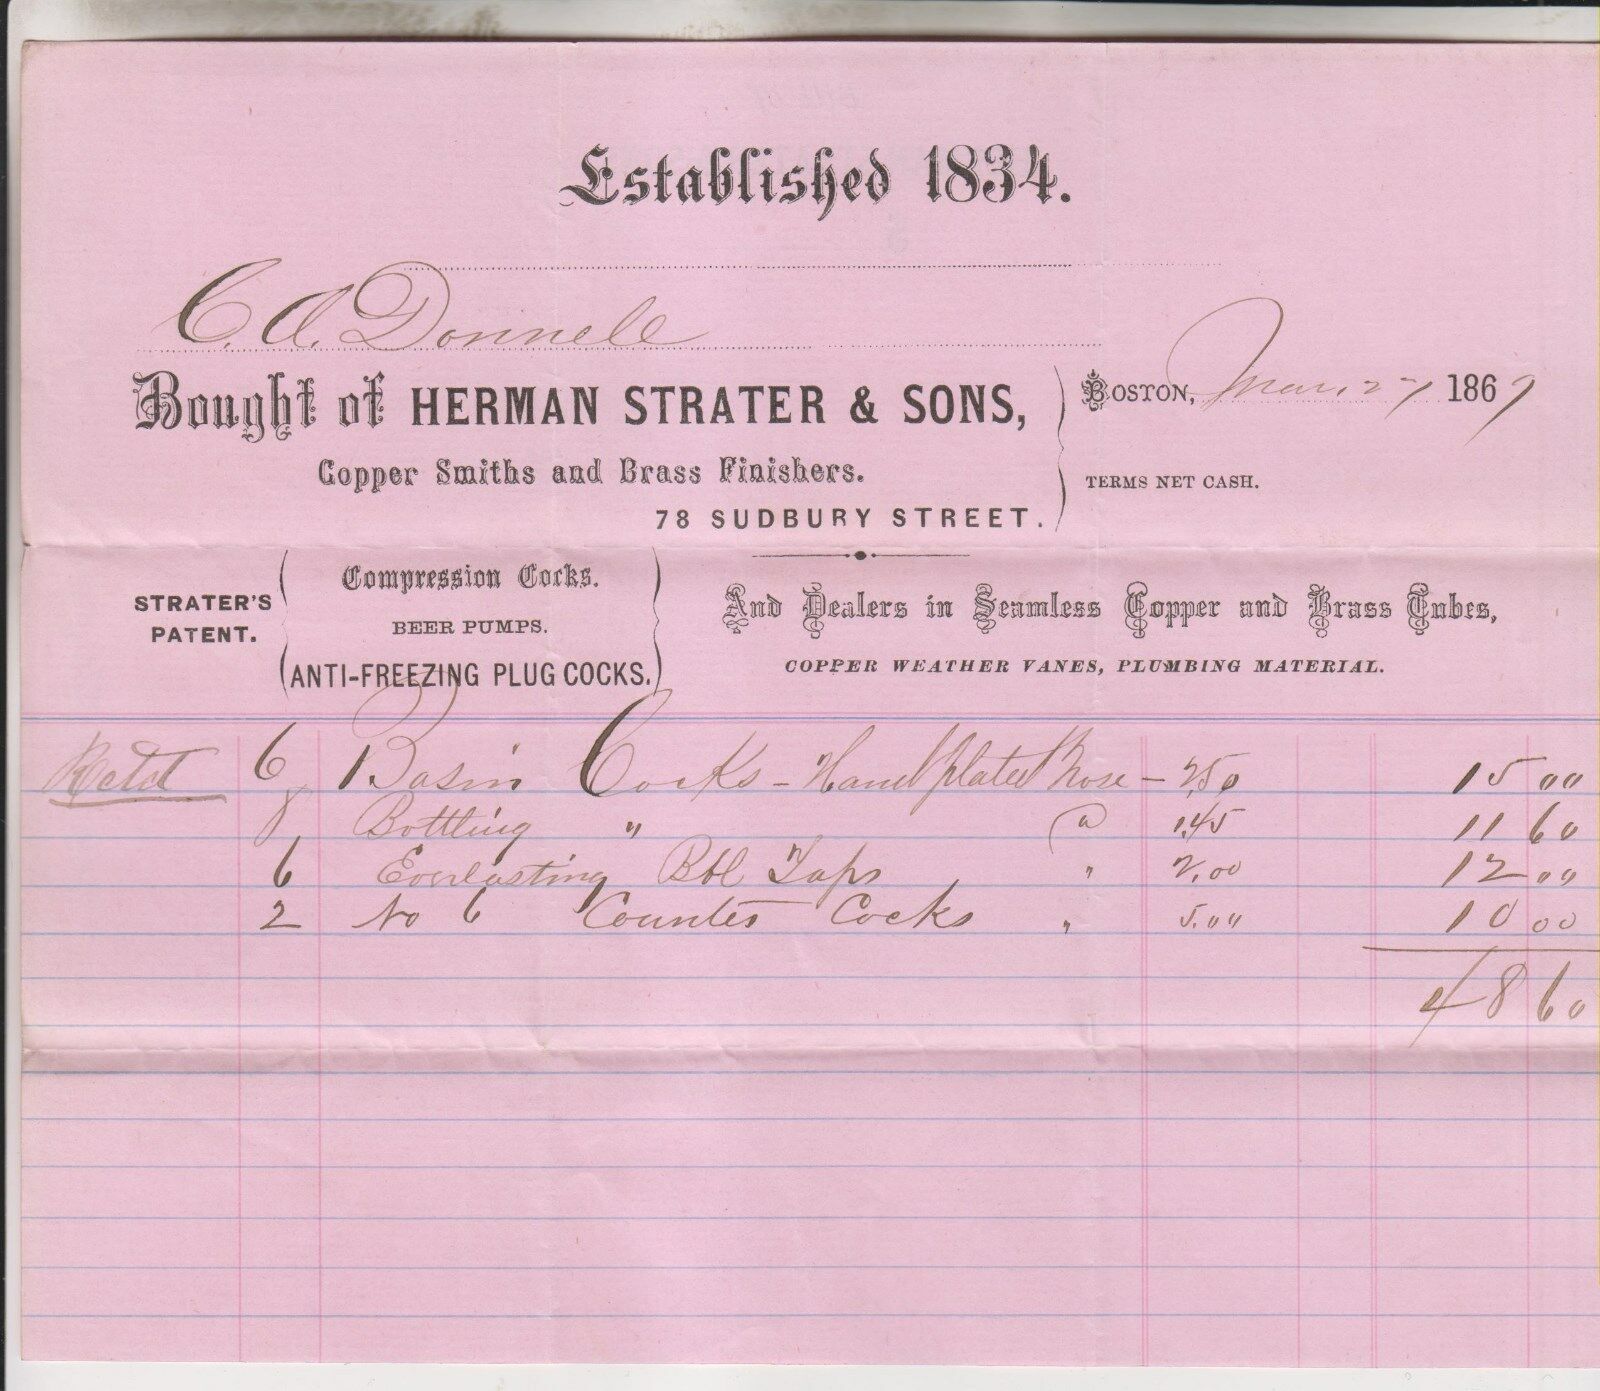 Established 1834.
C. A. Donnell
Bought of HERMAN STRATER & SONS,
BOSTON, Mar. 27 1869
Copper Smiths and Brass Finishers.
TERMS NET CASH.
78 SUDBURY STREET.
STRATER'S PATENT.
Compression Cocks.
BEER PUMPS.
ANTI-FREEZING PLUG COCKS.
And Dealers in Seamless Copper and Brass Tubes,
COPPER WEATHER VANES, PLUMBING MATERIAL.
6 Basin Cocks - plated - 2.50 15 00
8 Bottling " @ 1.45 11 60
6 Everlasting Bbl Taps " 2.00 12 00
2 No 6 Counter Cocks " 5.00 10 00
48 60